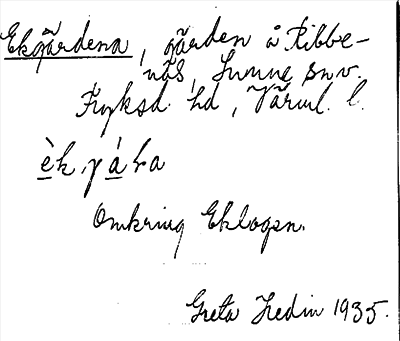 Ekgärdena, gärden å Ribbe-
näs, Sunne sn.
Fryksd. hd, Värml. l.
èk,yára
Omkring Eklogen.
Greta Hedin 1935.